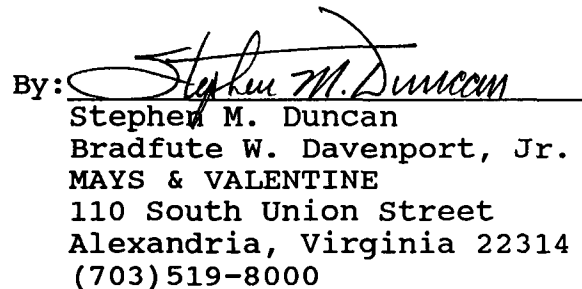 By: Stephen M. Duncan
Stephen M. Duncan
Bradfute W. Davenport, Jr.
MAYS & VALENTINE
110 South Union Street
Alexandria, Virginia 22314
(703)519-8000